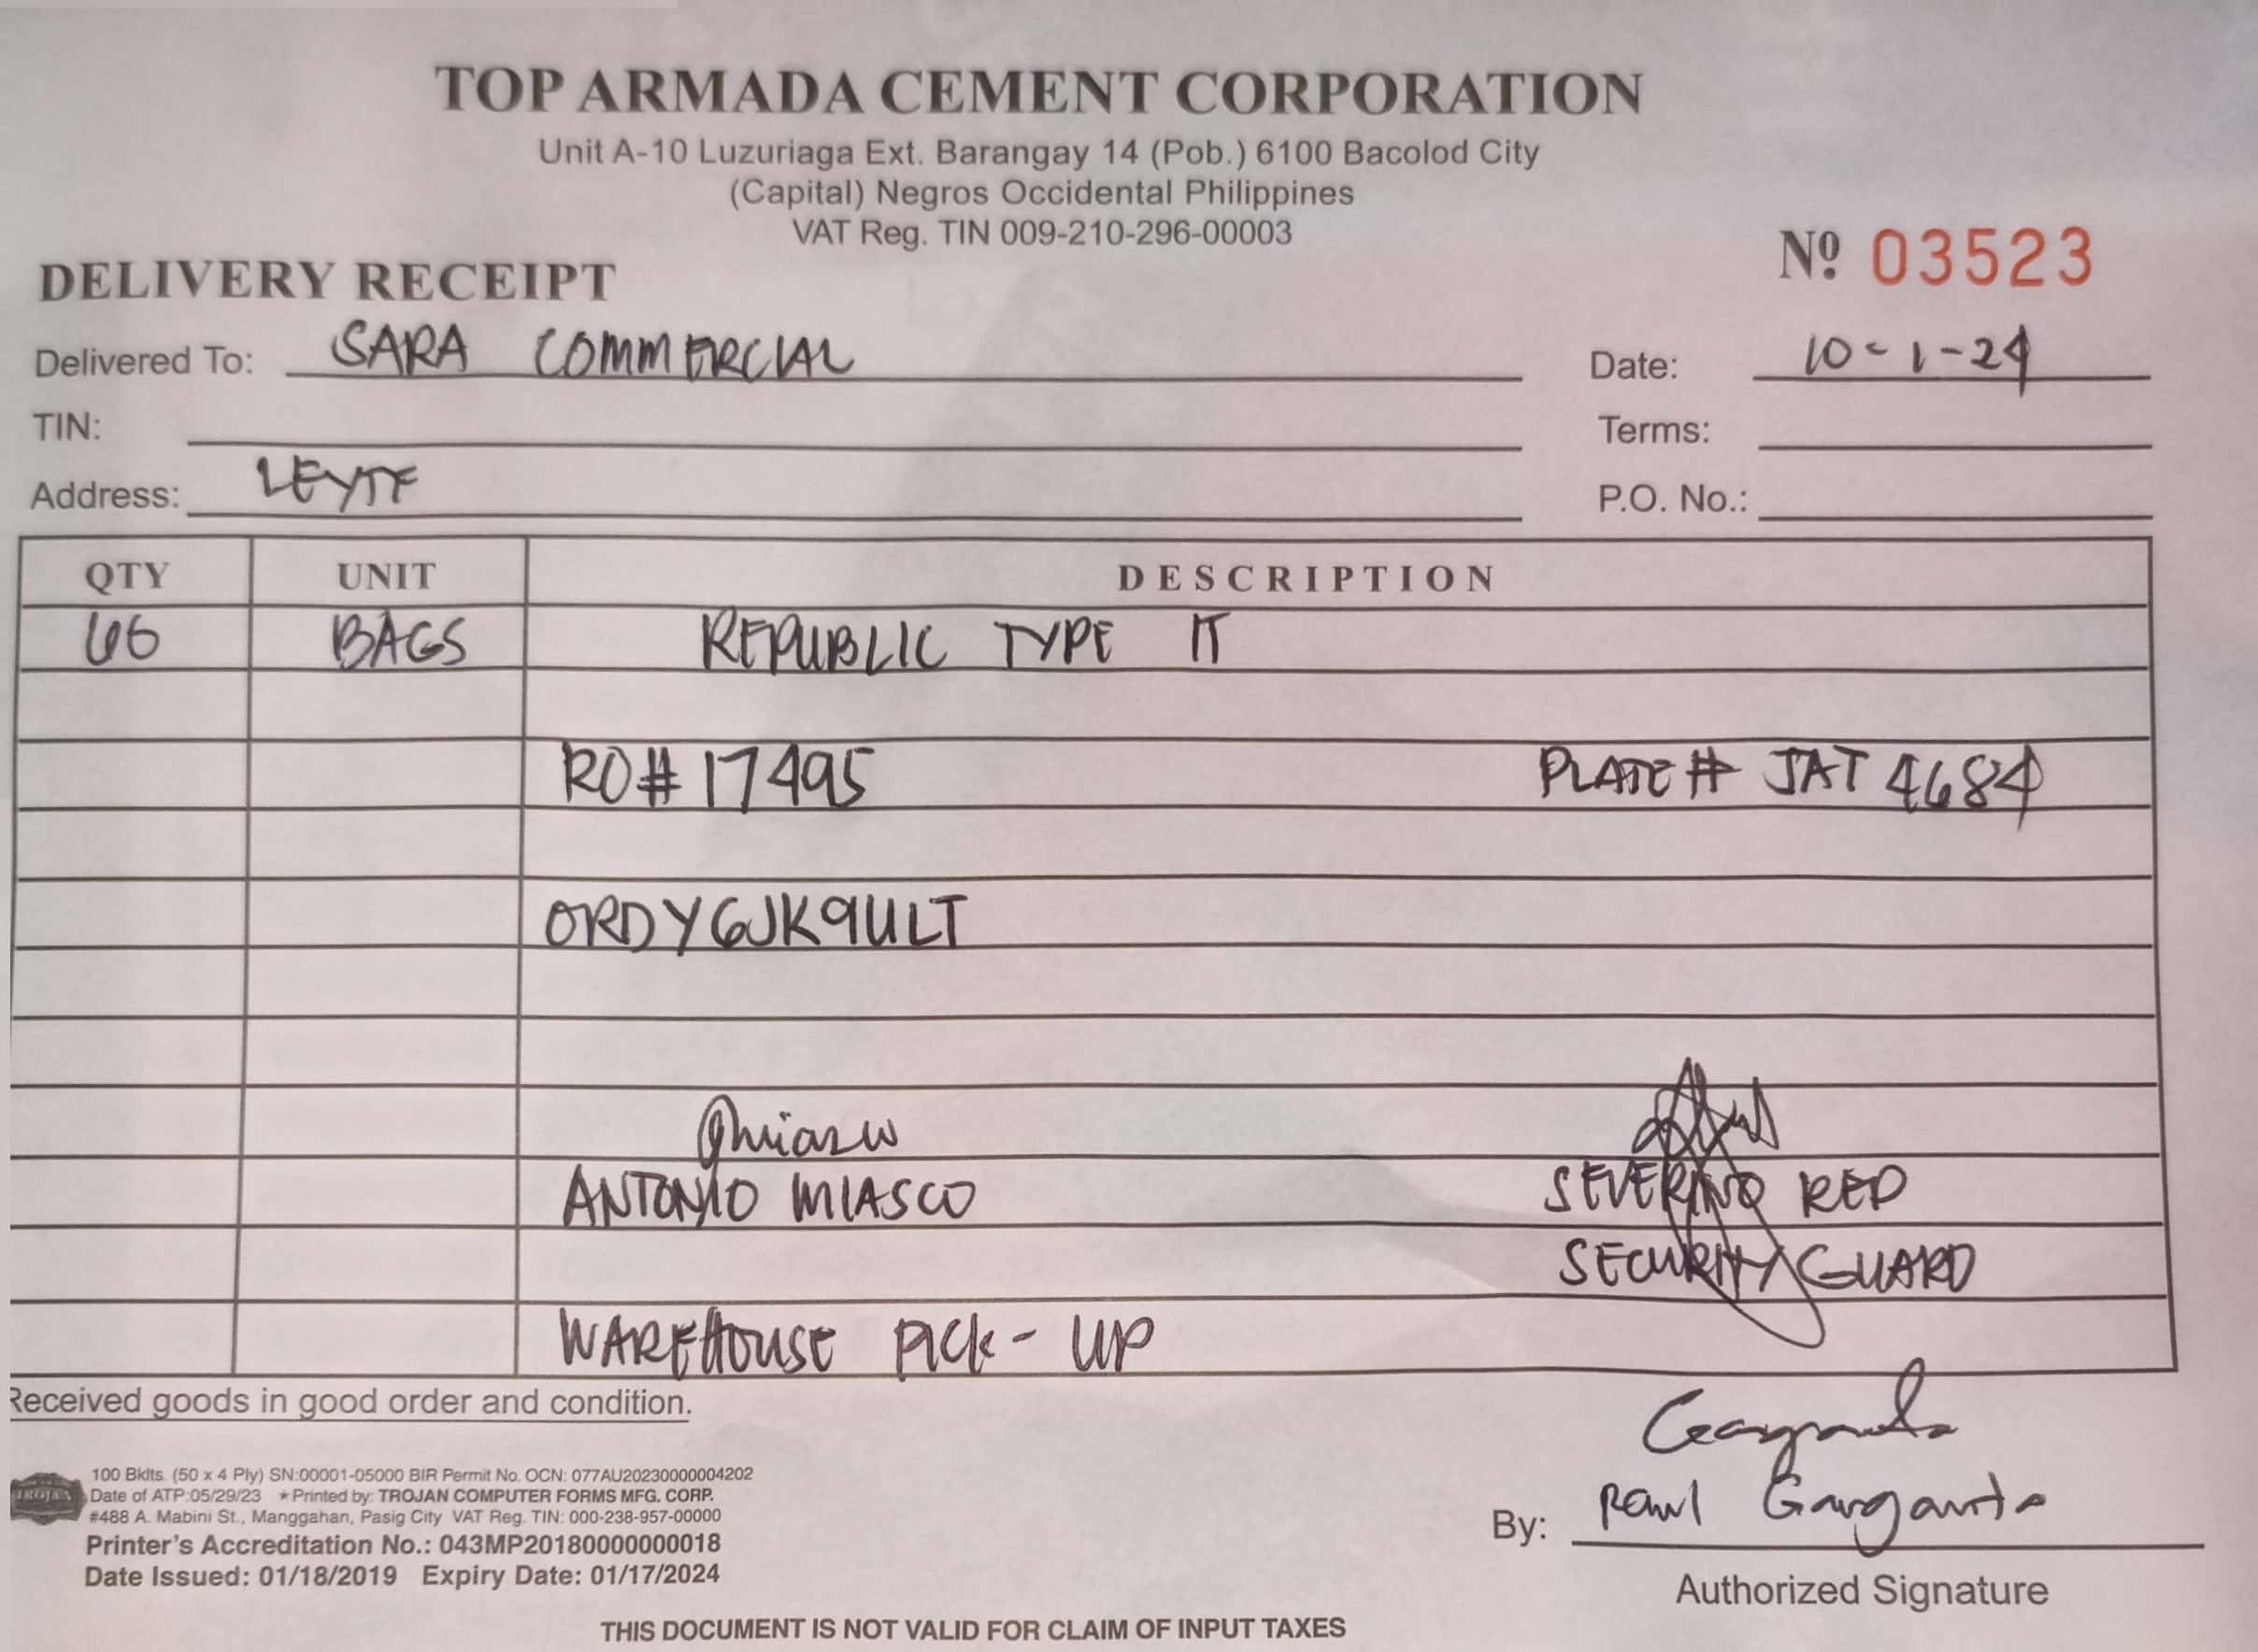 TOP ARMADA CEMENT CORPORATION
Unit A-10 Luzuriaga Ext. Barangay 14 (Pob.) 6100 Bacolod City
(Capital) Negros Occidental Philippines
VAT Reg. TIN 009-210-296-00003
Nº 03523
DELIVERY RECEIPT
Delivered To: SARA COMMERCIAL Date: 10-1-24
TIN: Terms:
Address: LEYTE P.O. No.:
QTY UNIT DESCRIPTION
BAGS REPUBLIC TYPE IT
RO# 17495 PLATE # JAT 4684
ORDY6JK9ULT
ANTONIO MIASCO SEVERINO RED
SECURITY GUARD
WAREHOUSE PICK-UP
Received goods in good order and condition.
TROJAN
100 Bklts. (50 x 4 Ply) SN:00001-05000 BIR Permit No. OCN: 077AU20230000004202
Date of ATP:05/29/23 ★Printed by: TROJAN COMPUTER FORMS MFG. CORP.
#488 A. Mabini St., Manggahan, Pasig City VAT Reg. TIN: 000-238-957-00000
Printer's Accreditation No.: 043MP20180000000018
Date Issued: 01/18/2019 Expiry Date: 01/17/2024
By: Raul Garganta
Authorized Signature
THIS DOCUMENT IS NOT VALID FOR CLAIM OF INPUT TAXES